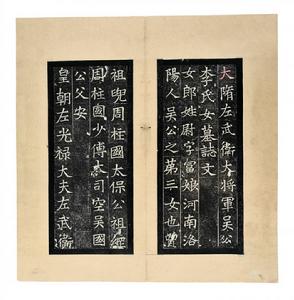 大隋左武衛大將軍吳公
李氏女墓誌文
女郎姓尉字富娘河南洛
陽人吳公之第三女也曾
祖兜周柱國太保公祖綱
周柱國少傅大司空吳國
公父安
皇朝左光禄大夫左武衛